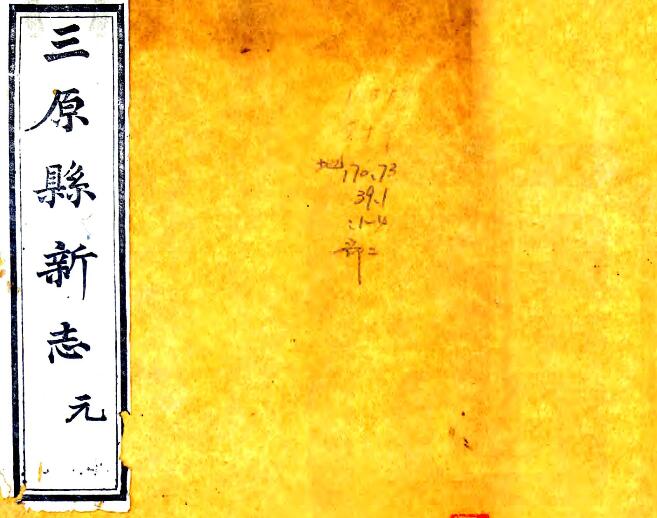 三原縣新志
元
地170.73
39.1
:1-4
部二